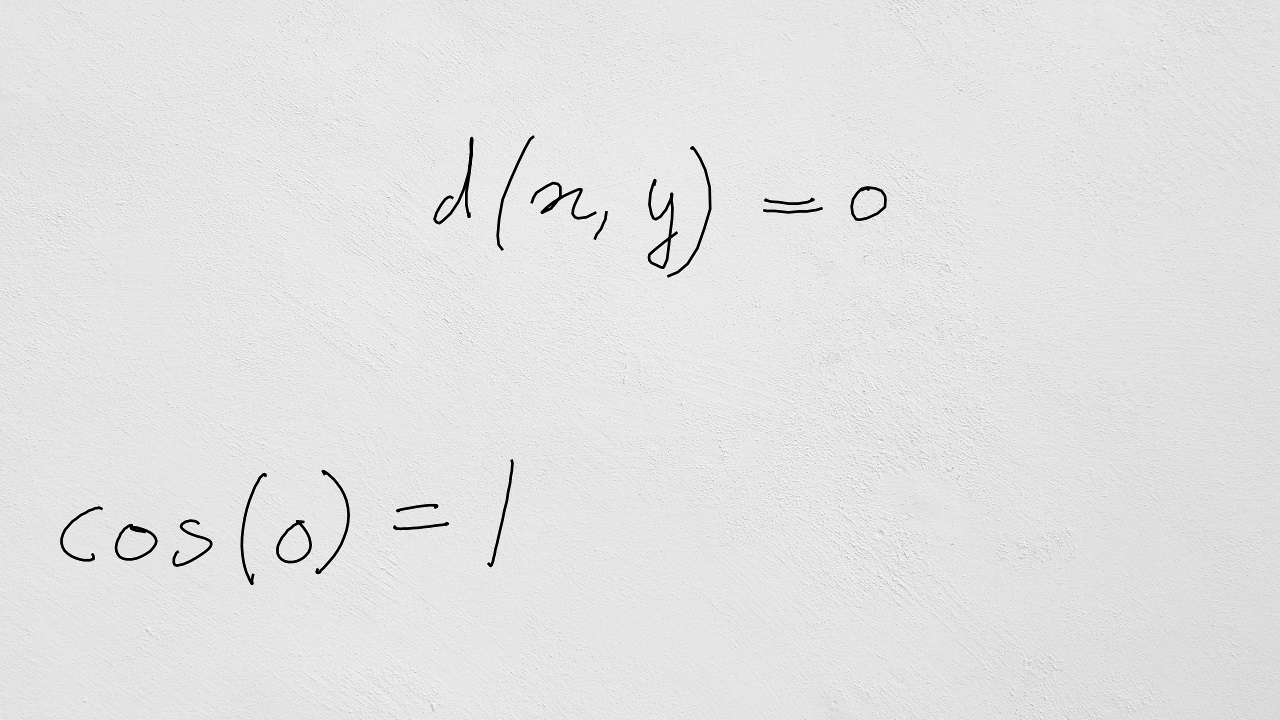 d(x, y) = 0
cos(0) = 1